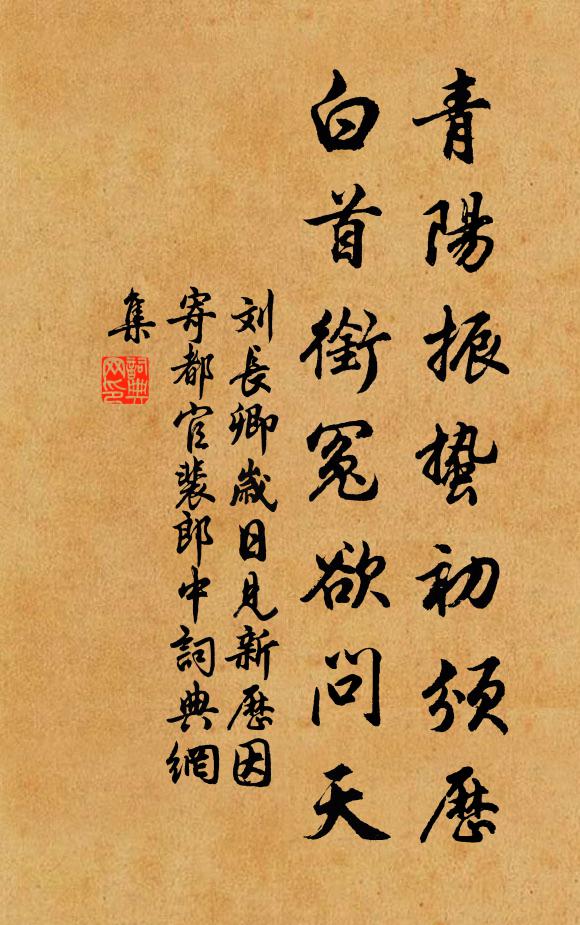 青陽振蟄初頒歷
白首銜冤欲問天
刘長卿歲日見新歷因
寄都官裴郎中詞典網
集
詞典网印